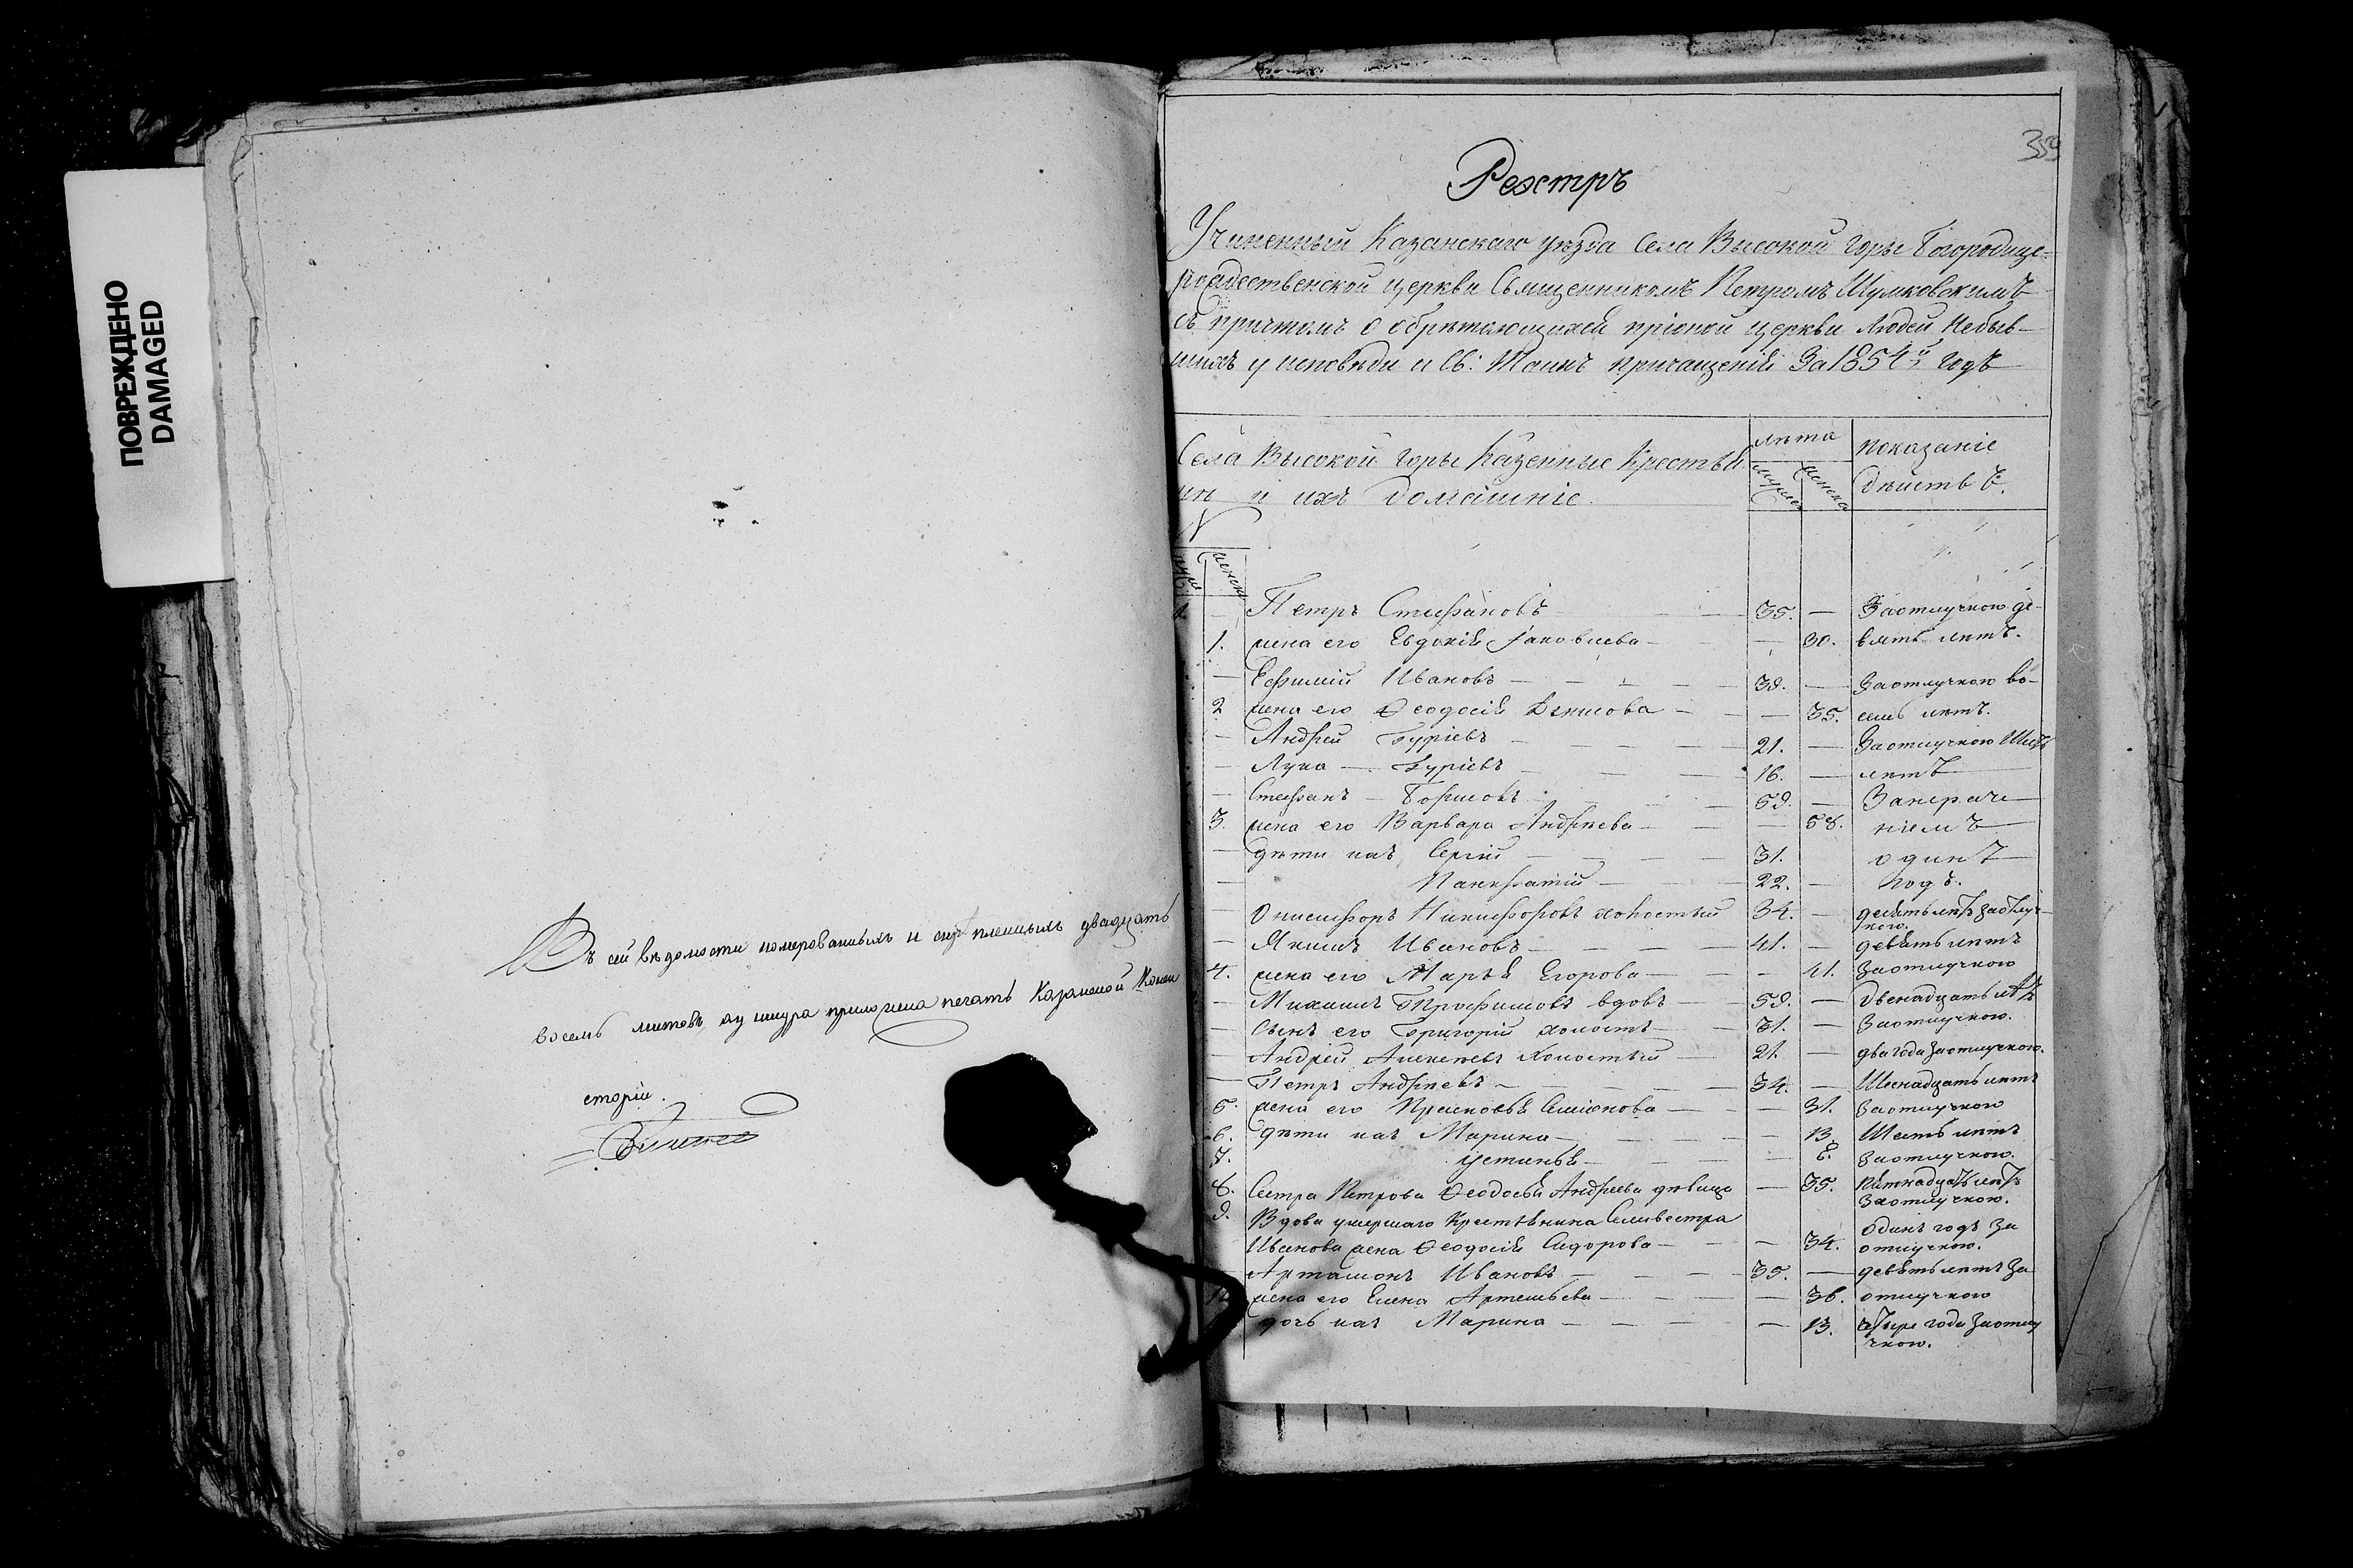 ПОВРЕЖДЕНО
DAMAGED
Въ сей вѣдомости номерованныхъ и скрѣпленныхъ двадцать
восемь листовъ, къ шнура приложена печать Казанской Конси
сторіи.
359
Реэстръ
Учиненный Казанскаго уѣзда Села Высокой горы Богородице-
рождественской церкви Священникомъ Петромъ Шумковскимъ
съ причтомъ о обрѣтающихся пріоной церкви людей небыв-
шихъ у исповѣди и Св: Таинъ причащенія За 1854й годъ
Села Высокой горы Казенные Крестья
не и ихъ домашніе.
лѣта
мужеск
женска
показаніе
дѣйствъ.
N
мужс
женска
1. — Петръ Стефановъ — 35. — Заотлучкою де-
1. жена его Евдокія Іаковлева — — 30. вять лѣтъ.
— Ефимій Ивановъ — 39. — Заотлучкою во-
2 жена его Ѳеодосія Денисова — — 35. семь лѣтъ.
— Андрей Гуріевъ — 21. — Заотлучкою Шесть
— Лука — Гуріевъ — 16. — лѣтъ
— Стефанъ — Борисовъ — 59. — Занераче
3. жена его Варвара Андрѣева — — 58. ніемъ
— дѣти ихъ Сергій — 31. одинъ
— Панкратій — 22. — годъ.
— Онисифоръ Никифоровъ холостый 34. — девять лѣтъ заотлуч
кою.
— Якимъ Ивановъ — 41. — девять лѣтъ
4. жена его Марья Егорова — — 41. Заотлучкою
— Михаилъ Трофимовъ вдовъ — 59. — Двенадцать лѣтъ
— Сынъ его Григорій холостъ — 31. — Заотлучкою.
— Андрей Алексѣевъ Холостый — 21. — два года Заотлучкою.
— Петръ Андрѣевъ — 34. — Шеснадцать лѣтъ
5. жена его Прасковья Семіонова — — 31. Заотлучкою
6. дѣти ихъ Марина — — 13. Шесть лѣтъ
7. Устинья — — 8. Заотлучкою.
8. Сестра Петрова Ѳеодосья Андреева дѣвица — 35. Пятнадцать лѣтъ
Заотлучкою.
9. Вдова умершаго Крестьянина Селивестра
Одинъ годъ За
Иванова жена Ѳеодосія Сидорова — — 34. отлучкою.
— Артамонъ Ивановъ — 35. — девять лѣтъ За
жена его Елена Артемьева — — 36. отлучкою
дочь ихъ Марина — — 13. четыре года Заотлу
чкою.